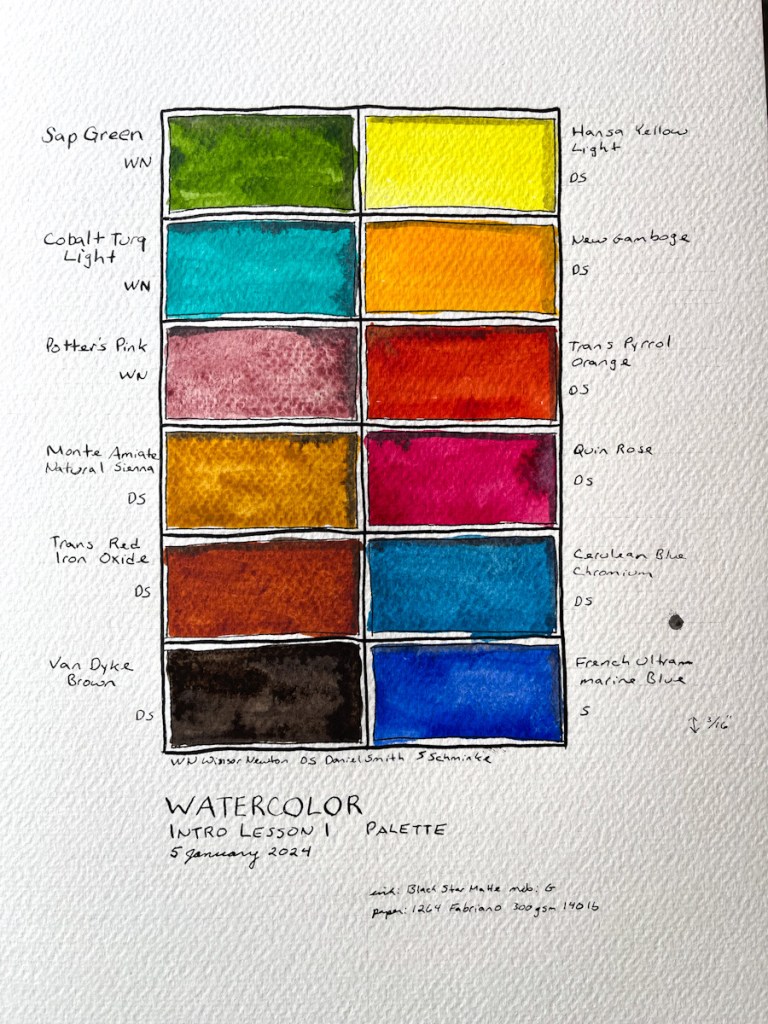 Sap Green
WN
Hansa Yellow
Light
DS
Cobalt Turq
Light
WN
New Gamboge
DS
Potter's Pink
WN
Trans Pyrrol
Orange
DS
Monte Amiata
Natural Sienna
DS
Quin Rose
DS
Trans Red
Iron Oxide
DS
Cerulean Blue
Chromium
DS
Van Dyke
Brown
DS
French Ultra
marine Blue
S
3/16"
WN Winsor Newton DS Daniel Smith S Schminke
WATERCOLOR
INTRO LESSON 1 PALETTE
5 January 2024
ink: Black Star Matte nib: G
paper: 1264 Fabriano 300gsm 140lb